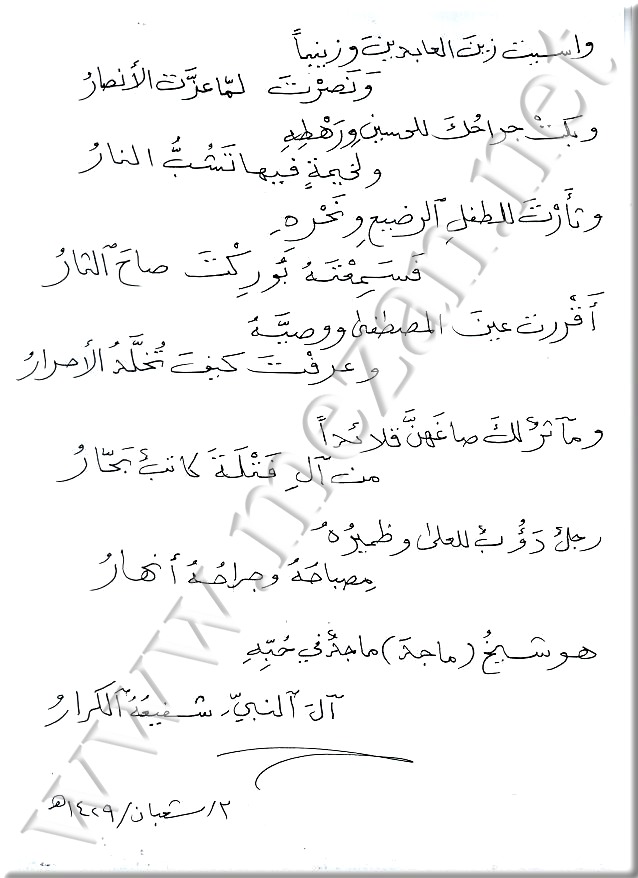 واسيت زينَ العابدينَ وزينباً
وَنَصرْتَ لمّا عزَّت الأنصارُ
وبكتْ جراحُكَ للحسينِ ورَهْطِهِ
ولخيمةٍ فيها تَشُبُّ النارُ
وثأَرْتَ للطفلِ ٱلرضيعِ ونَحْرِهِ
فَسَمِعْتَهُ بُورِكْتَ صاحَ ٱلثارُ
أَقْررت عينَ المصطفىٰ ووصيَّهُ
وعرفْتَ كيفَ تُخلَّدُ الأحرارُ
ومآثرٌ لكَ صاغَهنَّ قلائداً
من آلِ فَتْلَةَ كاتبٌ بَحّارُ
رجلٌ دَؤُبٌ للعلىٰ وظميرُهُ
مِصباحَهُ وجراحُهُ أنهارُ
هو شيخُ (ماجدَ) ماجدٌ في حُبِّهِ
آلَ ٱلنبيِّ شفيعَهُ ٱلكرارُ
٢/شعبان/١٤٢٩هـ
www.mezan.net